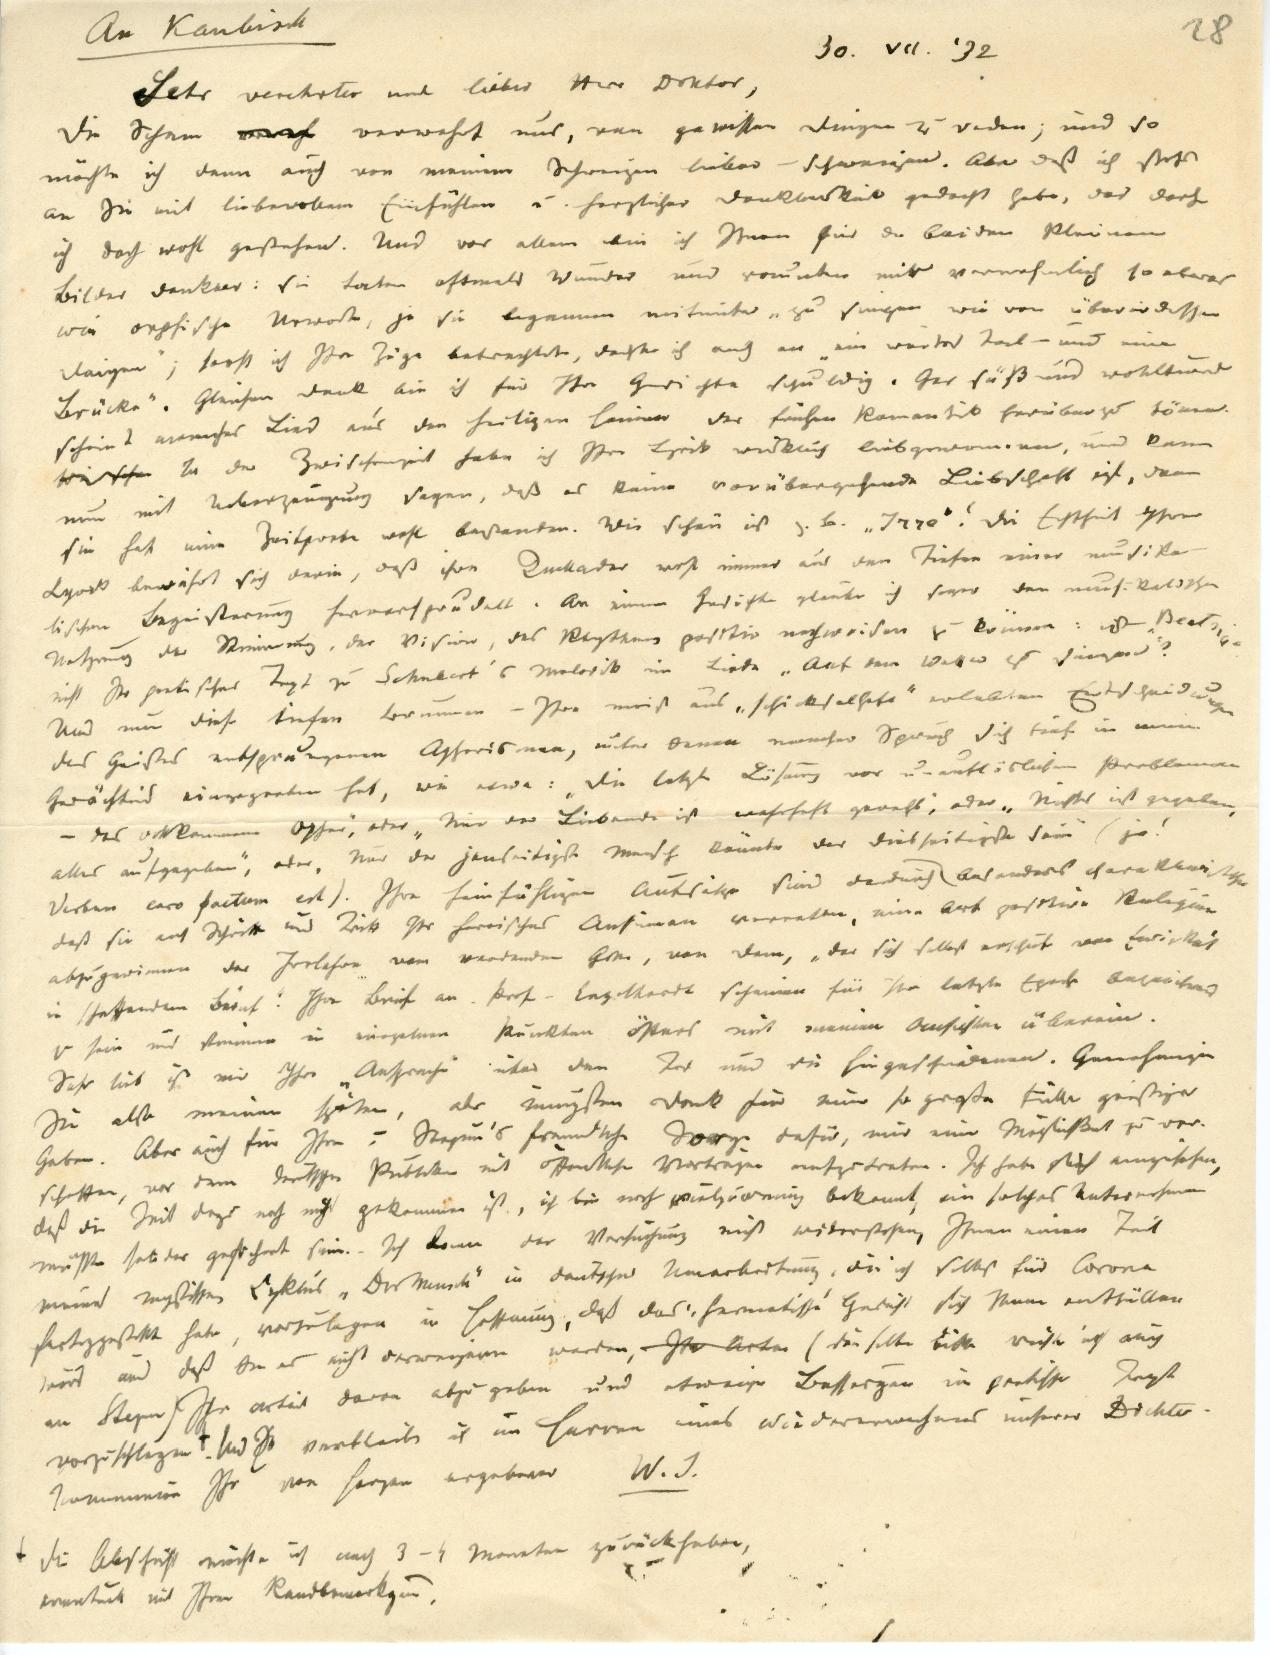 An Kaubisch
28
30. VII. '32
Sehr verehrter und lieber Herr Doktor,
Die Scham verwehrt uns, von gewissen Dingen zu reden; und so
möchte ich denn auch von meinem Schweigen lieber – schweigen. Aber daß ich stets
an Sie mit liebevollem Einfühlen u. herzlicher Dankbarkeit gedacht habe, das darf
ich doch wohl gestehen. Und vor allem bin ich Ihnen für die beiden kleinen
Bilder dankbar: sie taten oftmals Wunder und raunten mir vernehmlich so etwas
wie orphische Urworte, ja sie begannen mitunter „zu singen wie von überirdischen
Dingen"; sooft ich Ihre Züge betrachtete, dachte ich auch an „ein weites Tal – und eine
Brücke". Gleichen Dank bin ich für Ihre Gedichte schuldig. Gar süß und wohltuend
scheint manches Lied aus den heiligen Hainen der frühen Romantik herüberzutönen.
In der Zwischenzeit habe ich Ihre Lyrik wirklich liebgewonnen, und kann
nun mit Ueberzeugung sagen, daß es keine vorübergehende Liebschaft ist, denn
sie hat eine Zeitprobe wohl bestanden. Wie schön ist z. B. Die Echtheit Ihrer
Lyrik bewährt sich darin, daß ihre Quellader wohl immer aus den Tiefen einer musika-
lischen Begeisterung hervorsprudelt. An einem Gedichte glaube ich sogar den musikalischen
Ursprung der Stimmung, der Vision, des Rhythmus positiv nachweisen zu können: ist
nicht Ihr poetischer Text zu Schubert's Melodik im Liede „Auf dem Wasser zu singen"?
Und nun diese tiefen Brunnen – Ihre meist aus „schicksalhaft" erlebten Entscheidungen
des Geistes entsprungenen Aphorismen, unter denen mancher Spruch sich tief in mein
Gedächtnis eingegraben hat, wie etwa: „Die letzte Lösung vor unauflöslichen Problemen
– das vollkommene Opfer", oder „Nur der Liebende ist wahrhaft gerecht", oder „Nichts ist gegeben,
alles aufgegeben", oder „Nur der jenseitigste Mensch könnte der diesseitigste sein" (ja!
Verbum caro factum est). Ihre feinfühligen Aufsätze sind dadurch besonders charakteristisch
daß sie auf Schritt und Tritt Ihr heroisches Ansinnen verraten, eine Art positive Religion
abzugewinnen der Irrlehre vom werdenden Gott, von dem, „der sich selbst erschuf von Ewigkeit
in schaffendem Beruf". Ihre Brief an Prof. Engelhardt scheinen für Ihre letzte Epoche bezeichnend
zu sein und stimmen in einzelnen Punkten öfters mit meinen Ansichten überein.
Sehr lieb ist mir Ihre „Ansprache" über den Tod und die Hingeschiedenen. Genehmigen
Sie also meinen späten, aber innigsten Dank für eine so große Fülle geistiger
Gaben. Aber auch für Ihre u. Stepun's freundliche Sorge dafür, mir eine Möglichkeit zu ver-
schaffen, vor dem deutschen Publikum mit öffentlichen Vorträgen aufzutreten. Ich habe eingesehen,
daß die Zeit dazu noch nicht gekommen ist, ich bin noch viel zu wenig bekannt, ein solches Unternehmen
müsste besser gesichert sein. – Ich kann der Versuchung nicht widerstehen, Ihnen einen Teil
meines mystischen Cyklus „Der Mensch" in deutscher Umarbeitung, die ich selbst für Corona
fertiggestellt habe, vorzulegen in Hoffnung, daß das „hermetische" Gedicht sich Ihnen enthüllen
wird und daß Sie es nicht verweigern werden, (dieselbe Bitte richte ich auch
an Stepun) Ihr Urteil davon abzugeben und etwaige Besserungen im poetischen Text
vorzuschlagen†. Und so verbleibe ich im Harren eines Wiedererwachens unserer Dichter-
kommunion Ihr von Herzen ergebener W. I.
† Die Abschrift möchte ich nach 3–4 Monaten zurückhaben,
eventuell mit Ihren Randbemerkungen.